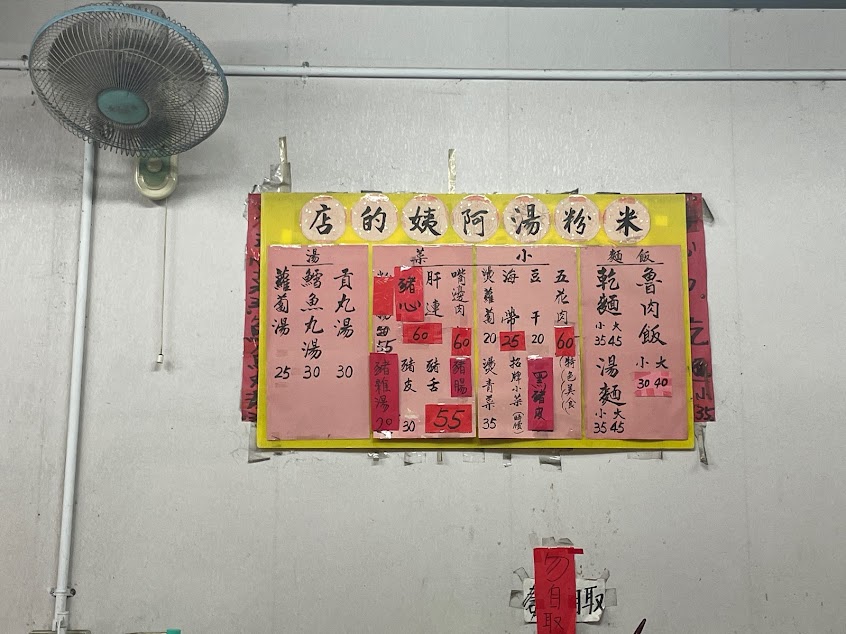 米粉湯阿姨的店
飯麵
魯肉飯 小30 大40
乾麵 小35 大45
湯麵 小35 大45
小菜
五花肉 60
豆干 20
海帶 25
燙蘿蔔 20
特色美食
黑豬皮
招牌小菜(時價)
燙青菜 35
嘴邊肉 60
肝連 60
豬心
55
豬腸
豬舌
55
豬皮 30
豬雜湯 70
湯
貢丸湯 30
鱈魚丸湯 30
蘿蔔湯 25
小
35
勿自取
自取